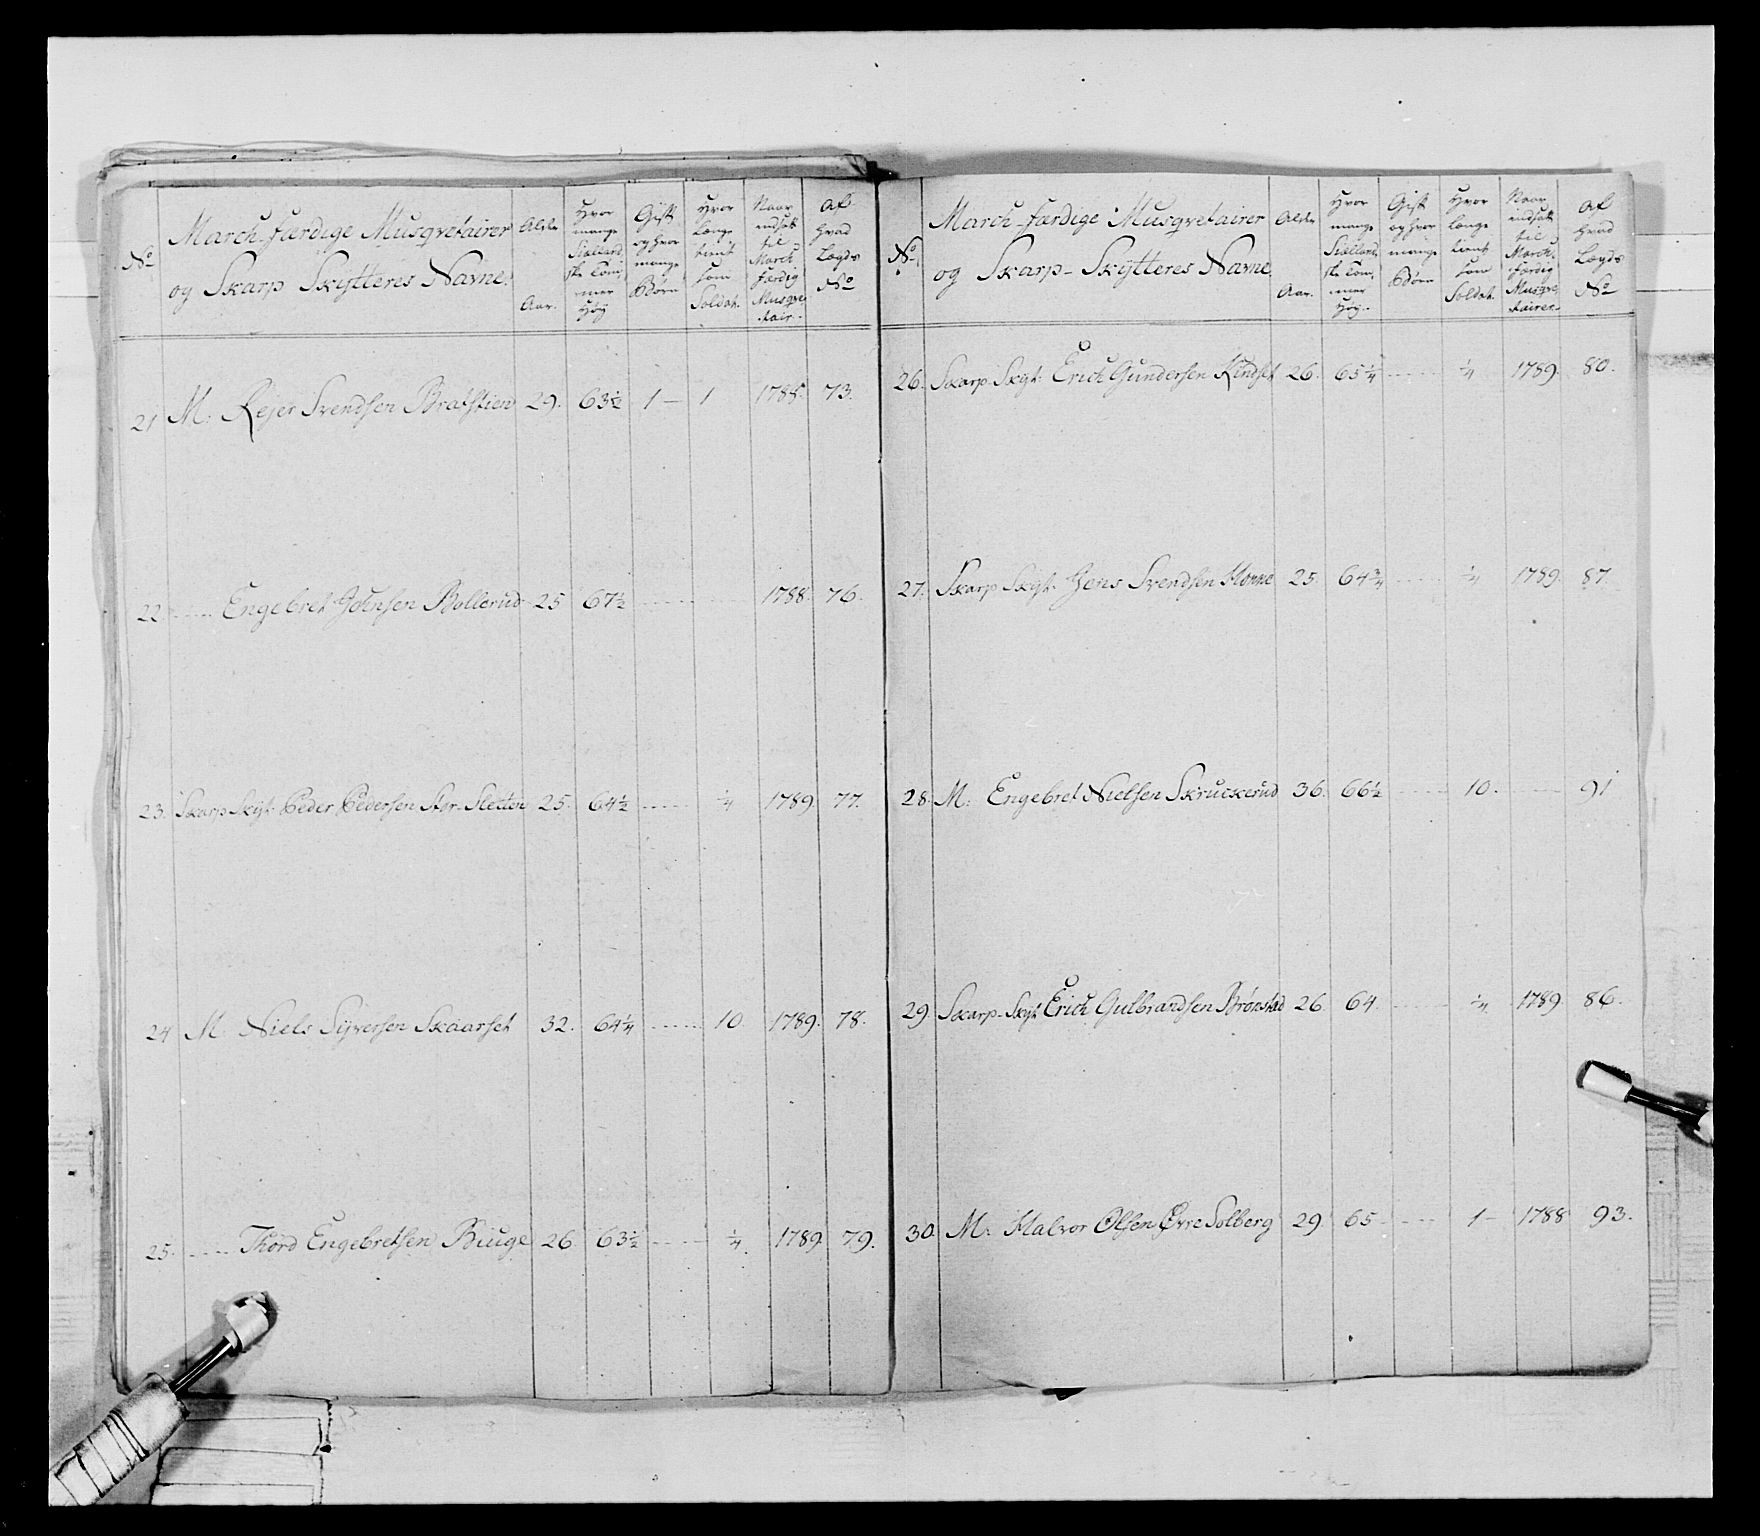 No
March-færdige Musqvetairer
og Skarp Skytteres Navne.
Alder
Aar.
Hvor
mange
Siælland
ske Tom,
mer
Høy
Gift
og hvor
mange
Børn
Hvor
længe
tient
som
Soldat.
Naar
indsatt
til
March
færdig
Musqve
tair.
Af
hvad
Lægds
No
21 M: Rejer Svendsen Bratstien 29. 63½ 1 — 1 1785. 73.
22 ...... Engebret Johnsen Bollerud 25 67½ ...... 1788. 76.
23. Skarp Skyt: Peder Pedersen Agr. Sletten 25. 64½ ...... ¼ 1789. 77.
24 M: Niels Syversen Skaarset 32. 64¼ ...... 10 1789. 78.
25. ...... Thord Engebretsen Biuge 26 63½ ...... ¼ 1789 79.
No
March-færdige Musqvetairer
og Skarp-Skytteres Navne.
Alder
Aar.
Hvor
mange
Siælland,
ske Tom,
mer
Høy.
Gift
og hvor
mange
Børn
Hvor
længe
tient
som
Soldat.
Naar
indsatt
til
March-
færdig
Musqve
tairer.
Af
hvad
Lægds
No
26. Skarp Skyt: Erich Gundersen Rindset 26. 65¼ ...... ¼ 1789. 80.
27. Skarp Skyt: Jens Svendsen Honne 25. 64¾ ...... ¼ 1789. 87.
28. M: Engebret Nielsen Skruckerud 36. 66½ ...... 10. ...... 91
29. Skarp-Skyt: Erich Gulbrandsen Brønstad 26. 64. ...... ¼ 1789. 86.
30. M: Halvor Olsen Øvre Solberg 29. 65 ...... 1 — 1788 93.